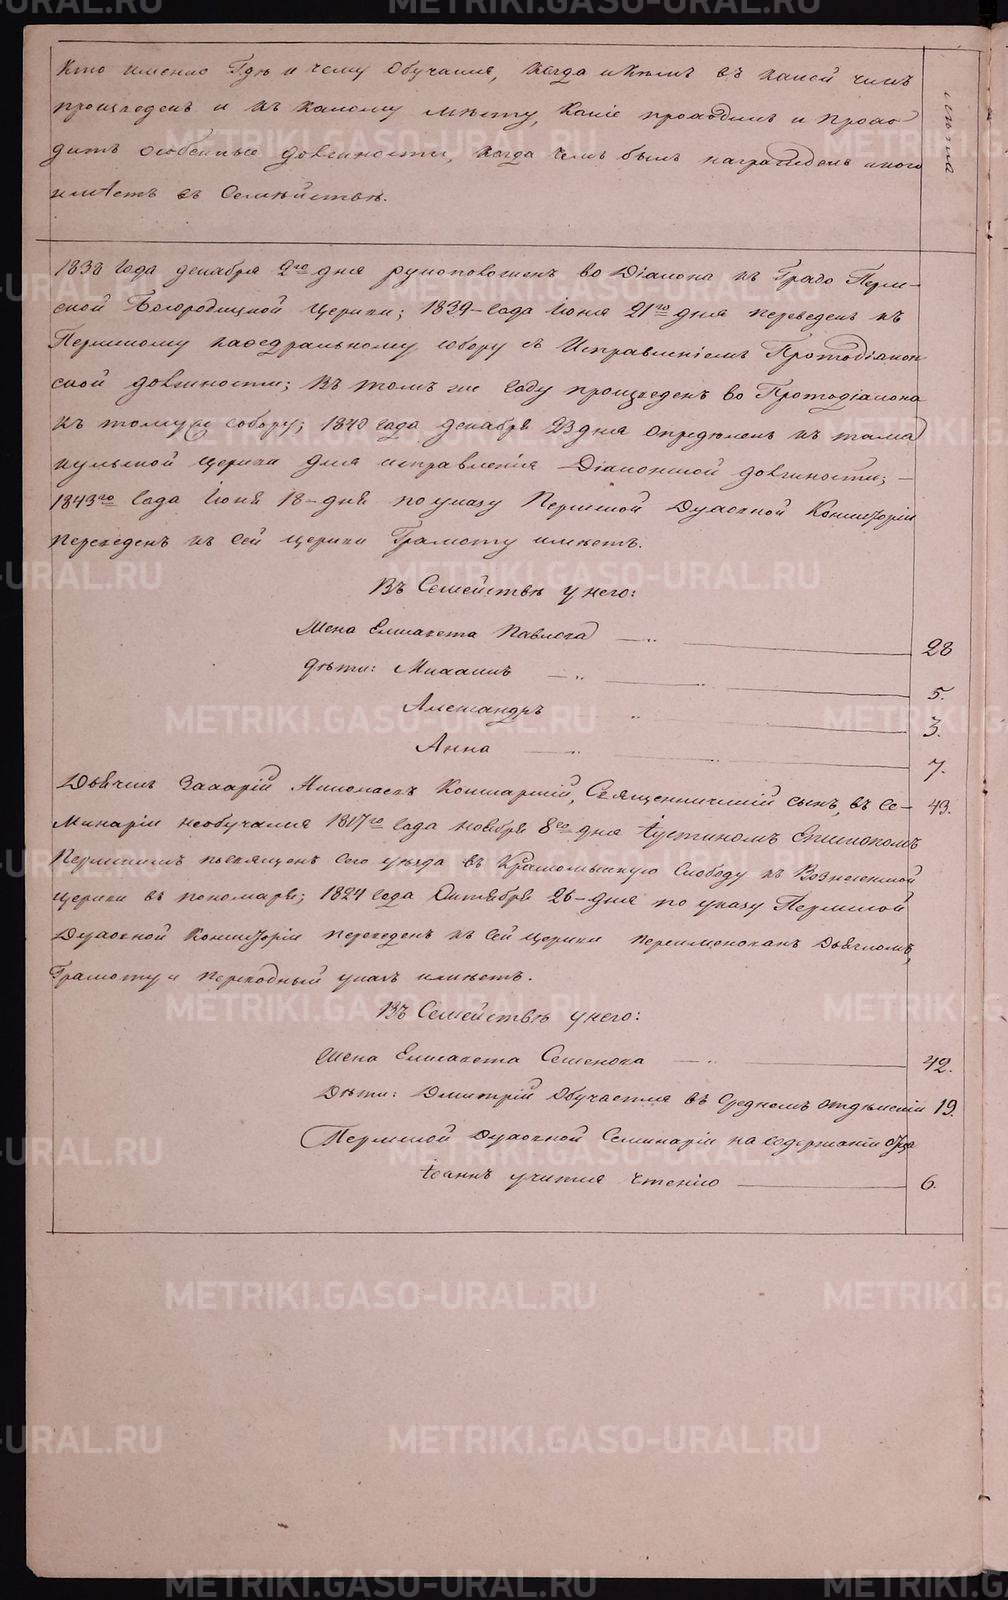 Кто именно Гдѣ и чему Обучался, Когда и кѣмъ въ какой чинъ
произведенъ и къ какому мѣсту, Какіе проходилъ и Прохо-
дитъ особенные должности, когда чемъ былъ награжденъ и кого
имѣетъ въ Семѣйствѣ.
лѣта
1838 Года декабря 9го дня рукоположенъ во Діакона къ Градо Перм-
ской Богородицкой Церкви; 1839 года Іюня 21го дня переведенъ къ
Пермскому кафедральному собору съ Исправленіемъ Протодіакон
ской должности; Въ томъ же году произведенъ во Протодіакона
къ тому собору; 1840 года декабря 23 дня Опредѣленъ къ
кульской церкви для исправленія Діаконской должности;
1843го Года Іюня 18 дня по указу Пермской Духовной Консисторіи
переведенъ къ Сей церкви Грамоту имѣетъ.
Въ Семействѣ у него:
Жена Елисавета Павлова 28
дѣти: Михаилъ 5.
Александръ 3.
Анна 7.
Дьячекъ Захарій Николаевъ Священническій сынъ, въ Се- 43.
минаріи необучался 1817го года Ноября 8го дня Іустиномъ Епископомъ
Пермскимъ посвященъ сего уѣзда въ Слободу къ Вознесенской
церкви въ пономаря; 1824 года Октября 26 дня по указу Пермской
Духовной Консисторіи переведенъ къ Сей церкви переименованъ Дьячкомъ,
Грамоту и переводный указъ имѣетъ.
Въ Семействѣ у него:
Жена Елисавета Семенова 42.
Дѣти: Дмитрій Обучается въ Среднемъ отдѣленіи 19.
Пермской Духовной Семинаріи на содержаніи отца
Іоаннъ учится чтенію 6.
METRIKI.GASO-URAL.RU